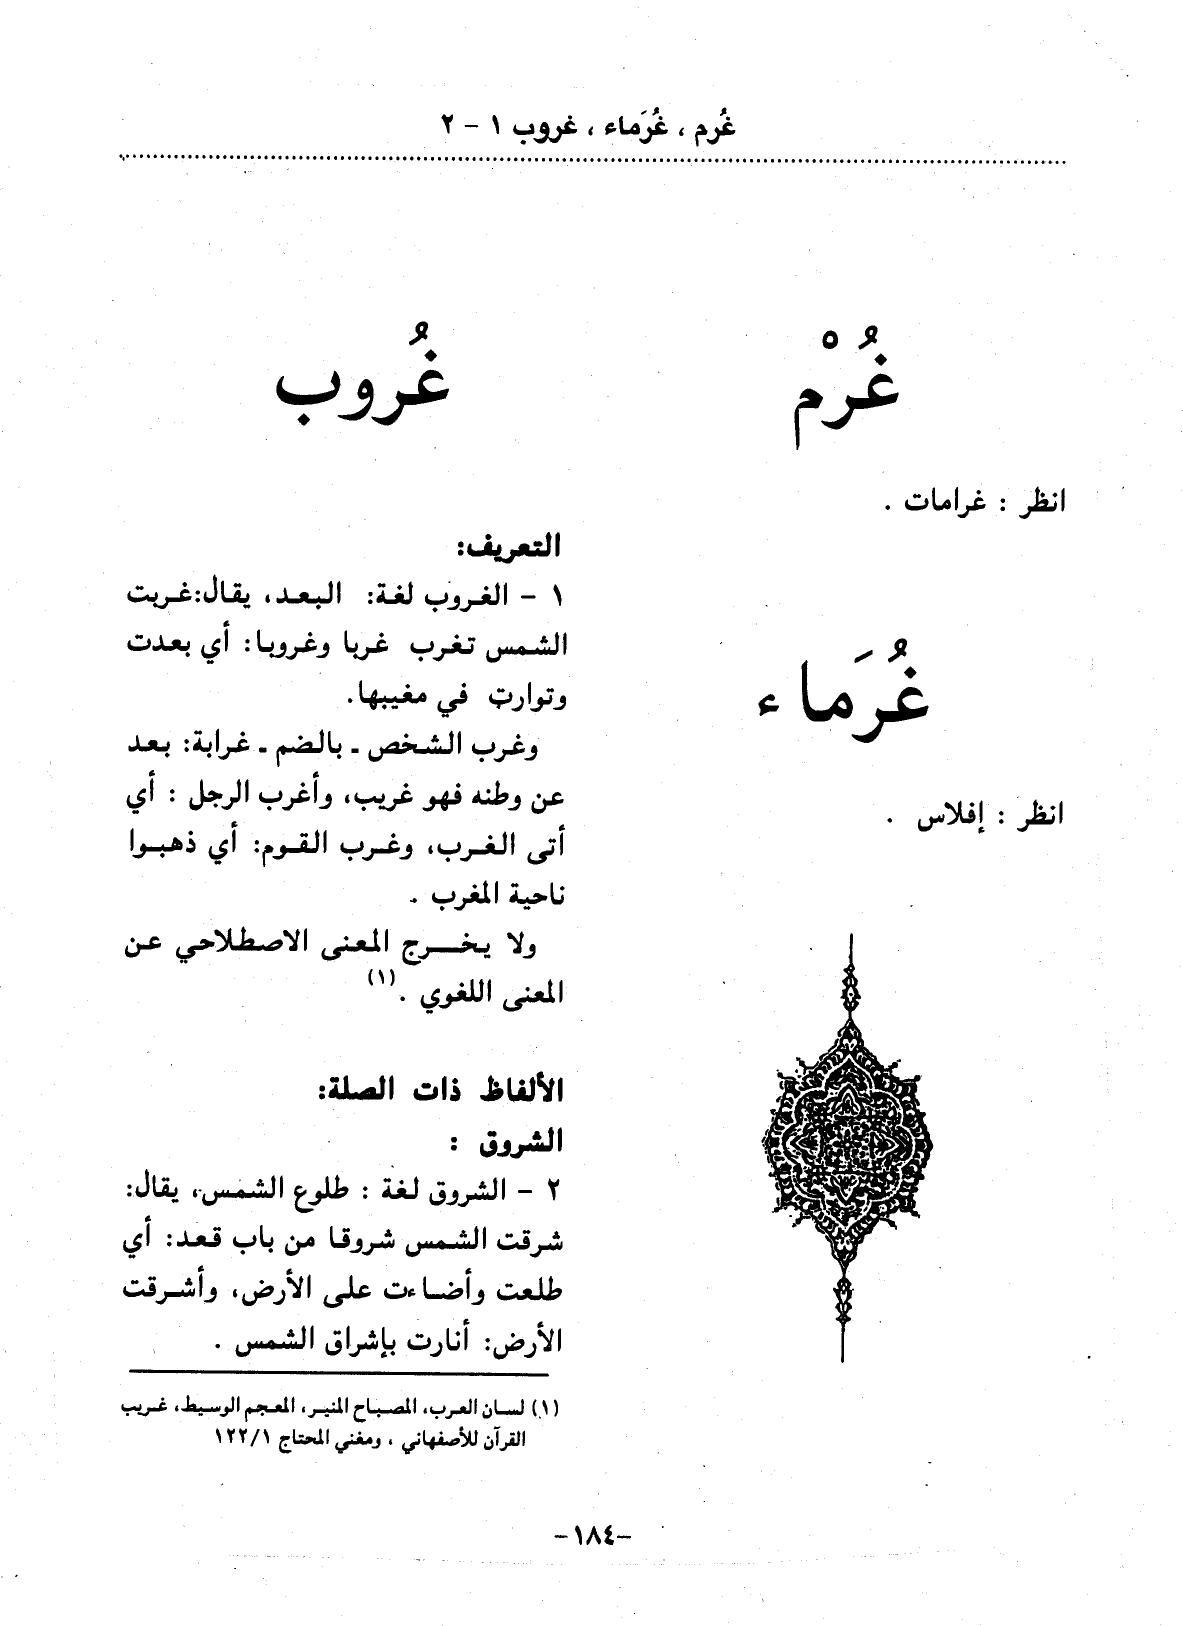 غُرم ، غُرَماء ، غروب ١ - ٢
غُرْم
انظر : غرامات .
غُرَماء
انظر : إفلاس .
غُروب
التعريف:
١ - الغروب لغة: البعد، يقال:غربت
الشمس تغرب غربا وغروبا: أي بعدت
وتوارت في مغيبها.
وغرب الشخص ـ بالضم ـ غرابة: بعد
عن وطنه فهو غريب، وأغرب الرجل : أي
أتى الغرب، وغرب القوم: أي ذهبوا
ناحية المغرب .
ولا يخرج المعنى الاصطلاحي عن
المعنى اللغوي .(١)
الألفاظ ذات الصلة:
الشروق :
٢ - الشروق لغة : طلوع الشمس، يقال:
شرقت الشمس شروقا من باب قعد: أي
طلعت وأضاءت على الأرض، وأشرقت
الأرض: أنارت بإشراق الشمس .
(١) لسان العرب، المصباح المنير، المعجم الوسيط، غريب
القرآن للأصفهاني ، ومغني المحتاج ١٢٢/١
-١٨٤-